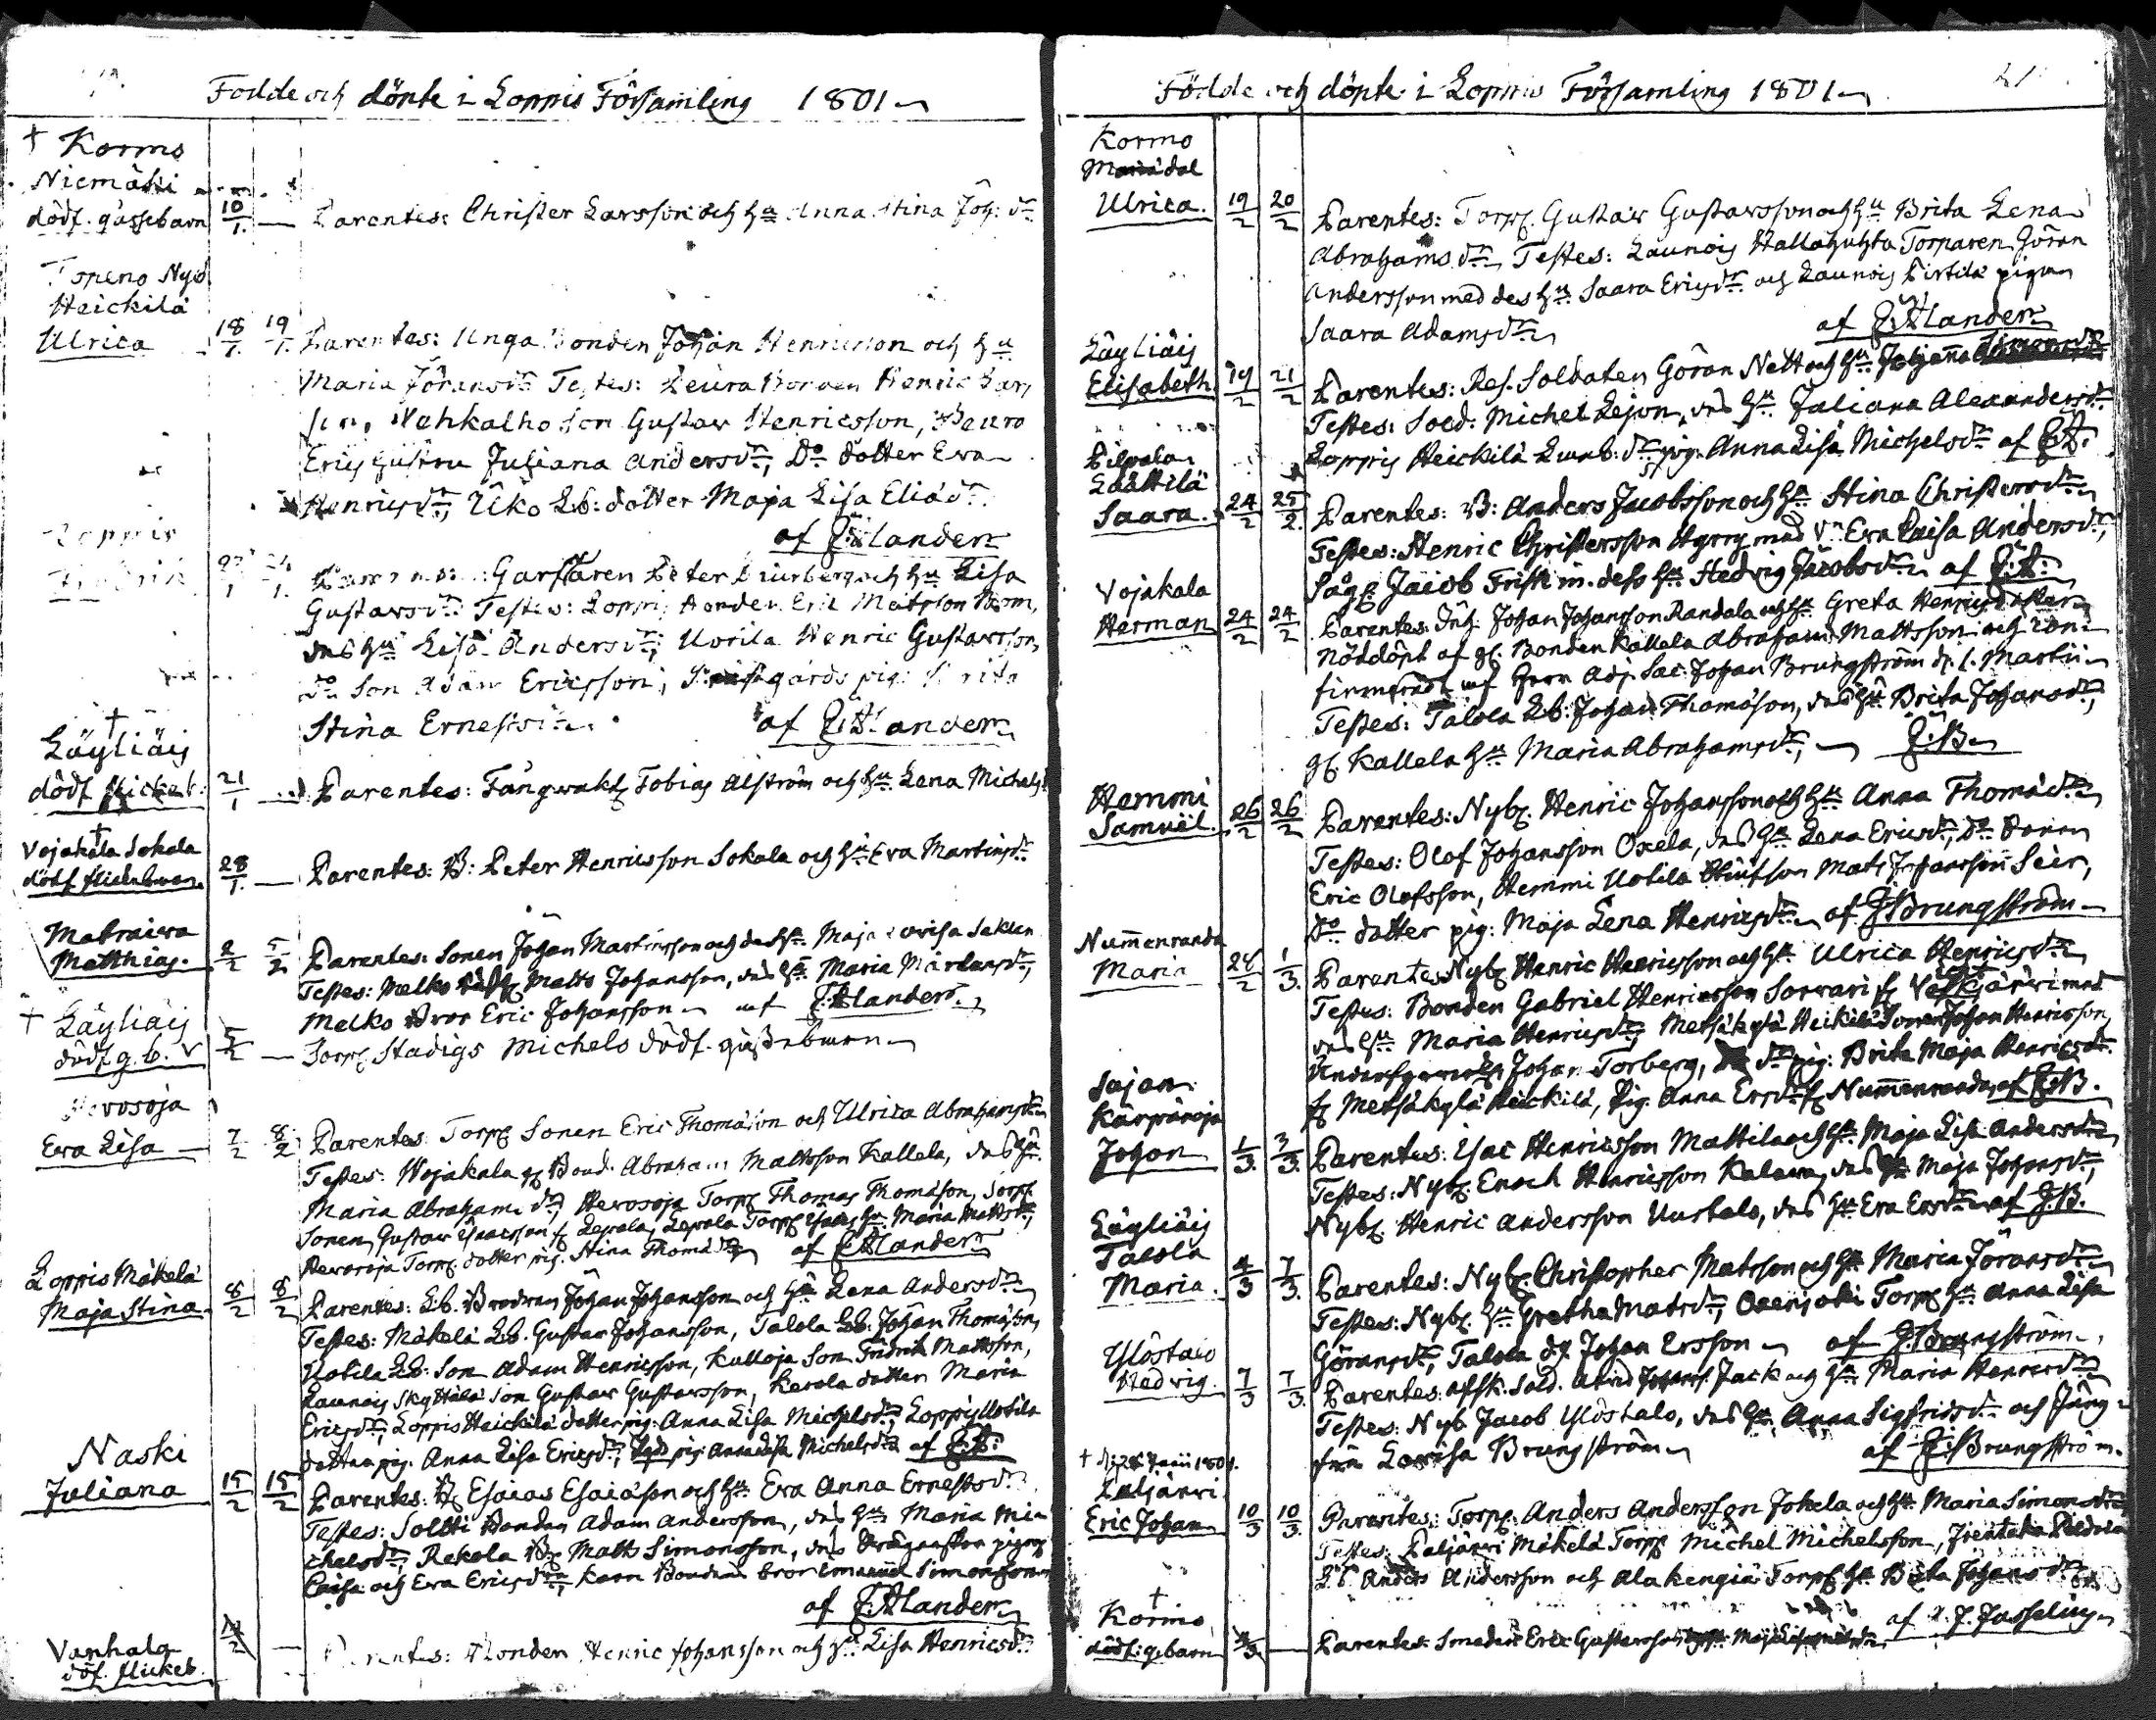 Födde och döpte i Loppis Församling 1801
† Kormo
Niemäki
dödf. gossebarn 10/1 — Parentes: Christer Larsson och hu Anna Stina Joh: dr
Topeno Nyb
Heickilä
Ulrica 18/1 19/1 Parentes: Unga Bonden Johan Henricsson och hu
Maria Jöransdr Testes: Henric Lars
son, Gustav Henricsson,
Erics hustru Juliana Andersdr, Do dotter Eva
Henricsdr, Uko Lb: dotter Maja Lisa Eliædr
af E: Alander
Loppis
Parentes: Garfvaren Peter och hu Lisa
Gustavsdr Testes: Loppis Bonden Eric Matsson
des hu Lisa Andersdr; Uotila Henric Gustavsson,
Do Son Adam Ericsson, pig: Brita
Stina Ernestsdr af E: Alander
†
Läyliäis
dödf. flickeb: 21/1 — Parentes: Fångvakt Tobias Alström och hu Lena Michels
†
Vojakala Sokala
dödf flickebarn 28/1 — Parentes: B: Peter Henricsson Sokala och hu Eva Martinsdr
Matthias. 2/2 5/2 Parentes: Sonen Johan Martinsson och des hu Maja Lovisa
Testes: Melko Matts Johansson, des hu Maria Mårtensdr,
Melko Bror Eric Johansson af E: Alander
† Läyliäis
dödf g. b. 5/2 — Torp: Stadigs Michels dödf. gossebarn
Hevosoja
Eva Lisa — 7/2 8/2 Parentes: Torp: Sonen Eric Thomason och Ulrica Abrahamsdr
Testes: Wojakala gl Bond. Abraham Mattsson Kallela, des hu
Maria Abrahamsdr, Hevosoja Torp: Thomas Thomason, Torp:
Sonen Gustav Isacsson fr Lepola, Lepola Torp: Isacs hu Maria Mattsdr,
Hevosoja Torp: dotter pig. Stina Thomædr af E: Alander
Loppis Mäkelä
Maja Stina 8/2 8/2 Parentes: Lb. Brodren Johan Johansson och hu Lena Andersdr
Testes: Mäkelä Lb. Gustav Johansson, Talola Lb: Johan Thomason,
Uotila Lb: Son Adam Henricsson, Kulloja Son Fridrik Mattsson,
Launois Skyttälä Son Gustav Gustavsson, Kerola dotter Maria
Ericsdr, Loppis Heickilä dotter pig: Anna Lisa Michelsdr, Loppis Uotila
dotter pig. Anna Lisa Ericsdr, pig Anna Lisa Michelsdr af E: A:
Naski
Juliana 15/2 15/2 Parentes: B: Esaias Esaiason och hu Eva Anna Ernestsdr
Testes: Soltti Bonden Adam Andersson, des hu Maria Mi-
chelsdr, Rekola B: Matts Simonsson, pigor
Caisa och Eva Ericsdr, Bondens bror Emanuel Simonsson
af E: Alander
Vanhala
döf. flickeb. — Parentes: Bonden Henric Johansson och hu Lisa Henricsdr
Födde och döpte i Loppis Församling 1801 21
Kormo
Mariædal
Ulrica 19/2 20/2 Parentes: Torp: Gustav Gustavsson och hu Brita Lena
Abrahamsdr Testes: Launois Hallahuhta Torparen Göran
Andersson med des hu Saara Ericsdr och Launois Pirtilä pigan
Saara Adamsdr af E: Alander
Läyliäis
Elisabeth 19/2 21/2 Parentes: Res. Soldaten Göran Nett och hu Johanna Simonsdr
Testes: Sold. Michel Lejon, des hu Juliana Alexandersdr
Loppis Heickilä dr pig. Anna Lisa Michelsdr af E: A:
Pilpala
Läättilä
Saara 24/2 25/2 Parentes: B: Anders Jacobsson och hu Stina Christersdr
Testes: Henric Christersson Hyrry med Eva Caisa Andersdr,
Jacob Frisk m. dess hu Hedvig Jacobsdr af E: A:
Vojakala
Herman 24/2 24/2 Parentes: Johan Johansson Randala och hu Greta Henrics dotter
Nöddöpt af gl. Bonden Kallela Abraham Mattsson och con-
firmerad af Herr Adj. Sac: Johan Brungström d. 1. Martii
Testes: Talola Lb: Johan Thomason, des hu Brita Johansdr,
gl. Kallela hu Maria Abrahamsdr, J: B.
Hemmi
Samuel. 26/2 26/2 Parentes: Nyb: Henric Johansson och hu Anna Thomædr
Testes: Olof Johansson Oxela, des hu Lena Ericsdr, Do Sonen
Eric Olofsson, Hemmi Uotila Mats Johansson Seir,
Do dotter pig: Maja Lena Henricsdr af J: Brungström
Nummenranda
Maria 28/2 1/3 Parentes: Nyb: Henric Henricsson och hu Ulrica Henricsdr
Testes: Bonden Gabriel Henricsson Sorvari fr Veskjärvi med
des hu Maria Henricsdr, Metsäkylä Heikilä Sonen Johan Henricsson,
Johan Torberg, dr pig: Brita Maja Henricsdr
fr Metsäkylä Heickilä, Pig. Anna Ersdr fr Nummenranda af J: B.
Sajan
Kärpänoja
Johan 1/3 3/3 Parentes: Isac Henricsson Mattila och hu Maja Lisa Andersdr
Testes: Nyb: Enoch Henricsson Kalava, des hu Maja Johansdr,
Nyb: Henric Andersson Uustalo, des hu Eva Ersdr af J: B.
Läyliäis
Talola
Maria 4/3 7/3 Parentes: Nyb: Christopher Matsson och hu Maria Jöransdr
Testes: Nyb: hu Gretha Matsdr, Oxenjoki Torp: hu Anna Lisa
Göransdr, Talola Johan Ersson af J: Brungström
Ylöstalo
Hedvig. 7/3 7/3 Parentes: afsk. Sold. Johans. Jack och hu Maria Henricsdr
Testes: Nyb Jacob Ylöstalo, des hu Anna Sigfridsdr och Jung-
frun Lovisa Brungström af J: Brungström
† d: 26 Junii 1801.
Paljärvi
Eric Johan 10/3 10/3 Parentes: Torp: Anders Andersson Jokela och hu Maria Simonsdr
Testes: Paljärvi Mäkelä Torp: Michel Michelsson,
Lb Anders Andersson och Alakengiä Torp: hu Brita Johansdr
af J. Fasselius
†
Kormo
dödf: g. barn — Parentes: Smeden Eric Gustavsson